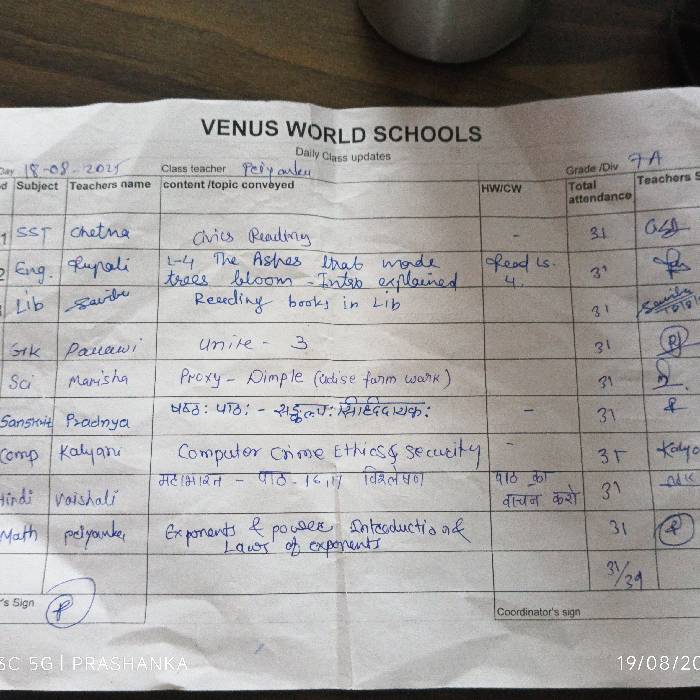 VENUS WORLD SCHOOLS
Daily Class updates
Day 18-08-2025 Class teacher Priyanka Grade /Div 7A
Subject Teachers name content /topic conveyed HW/CW Total attendance Teachers S
1 SST Chetna Civics Reading - 31
2 Eng. Rupali L-4 The Ashes that made Read Ls. 31
trees bloom - Intro explained 4.
Lib Reading books in Lib 31
GK Pallavi Unite - 3 31
Sci Manisha Proxy - Dimple (udise form work) 31
Sanskrit Pradnya षष्ठः पाठः - - 31
Comp Kalyani Computer Crime Ethics & Security - 31 Kalya
Hindi Vaishali महाभारत - पाठ - 16,17 विश्लेषण पाठ का 31
वाचन करो
Math Priyanka Exponents & power Introduction & 31
Laws of exponents
31/39
's Sign
Coordinator's sign
SC 5G | PRASHANKA 19/08/20